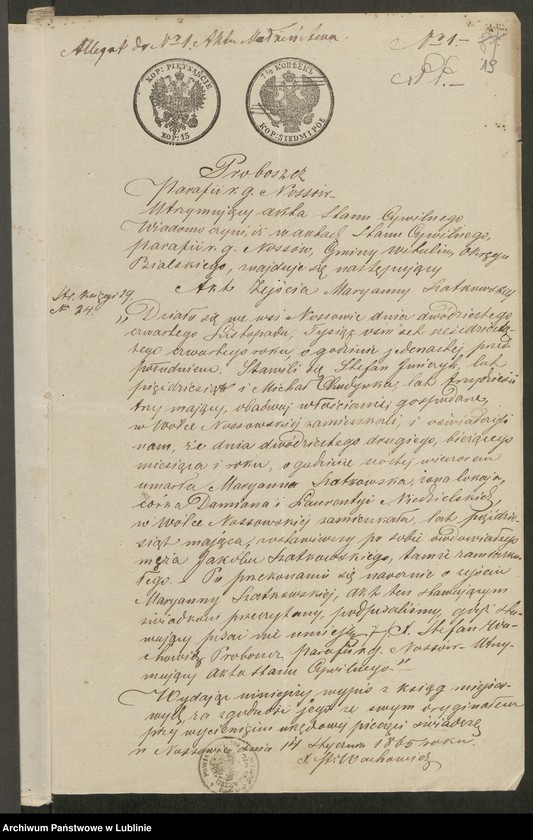 Allegat do Nº 1. Aktu Małżeństwa.
Nº 1.
19
КОР: PIĘTNAŚCIE
КОР: 15
7½ КОПѢЕКЪ
КОР: SIEDM I PÓŁ
Proboszcz
Parafii r. g. Nossów
Utrzymujący akta Stanu Cywilnego
Wiadomo czyni, iż w aktach Stanu Cywilnego,
parafii r. g. Nossów, Gminy Witulin, Okręgu
Bialskiego, znajduje się następujący
Akt Zejścia Maryanny Szatkowskiej
Str. księgi 19
Nº 24
„Działo się we wsi Nossowie dnia dwudziestego
czwartego Listopada, Tysiąc ośmset sześćdziesią-
tego czwartego roku, o godzinie jedenastej przed
południem. Stawili się Stefan lat
pięćdziesiąt i Michał lat trzydzieści
trzy mający, obadwaj włościanie, gospodarze,
w Wólce Nossowskiej zamieszkali, i oświadczyli
nam, że dnia dwudziestego drugiego, bieżącego
miesiąca i roku, o godzinie szóstej wieczorem
umarła Maryanna Szatkowska, żona lokaja,
córka Damiana i Laurentyi Niedzielskich,
w Wólce Nossowskiej zamieszkała, lat pięćdzie-
siąt mająca, zostawiwszy po sobie owdowiałego
męża Jakóba Szatkowskiego, tamże zamieszka-
łego. Po przekonaniu się naocznie o zejściu
Maryanny Szatkowskiej, akt ten stawającym
świadkom przeczytany, podpisaliśmy, gdyż sta-
wający pisać nie umieją. X. Stefan Wa-
chowicz Proboszcz parafii r. g. Nossów Utrzy-
mujący Akta Stanu Cywilnego."
Wydając niniejszy wypis z ksiąg miejsco-
wych za zgodność jego ze swym oryginałem
przy wyciśnięciu urzędowej pieczęci świadczę
w Nossowie dnia 14 Stycznia 1865 roku.
X. St: Wachowicz
Archiwum Państwowe w Lublinie